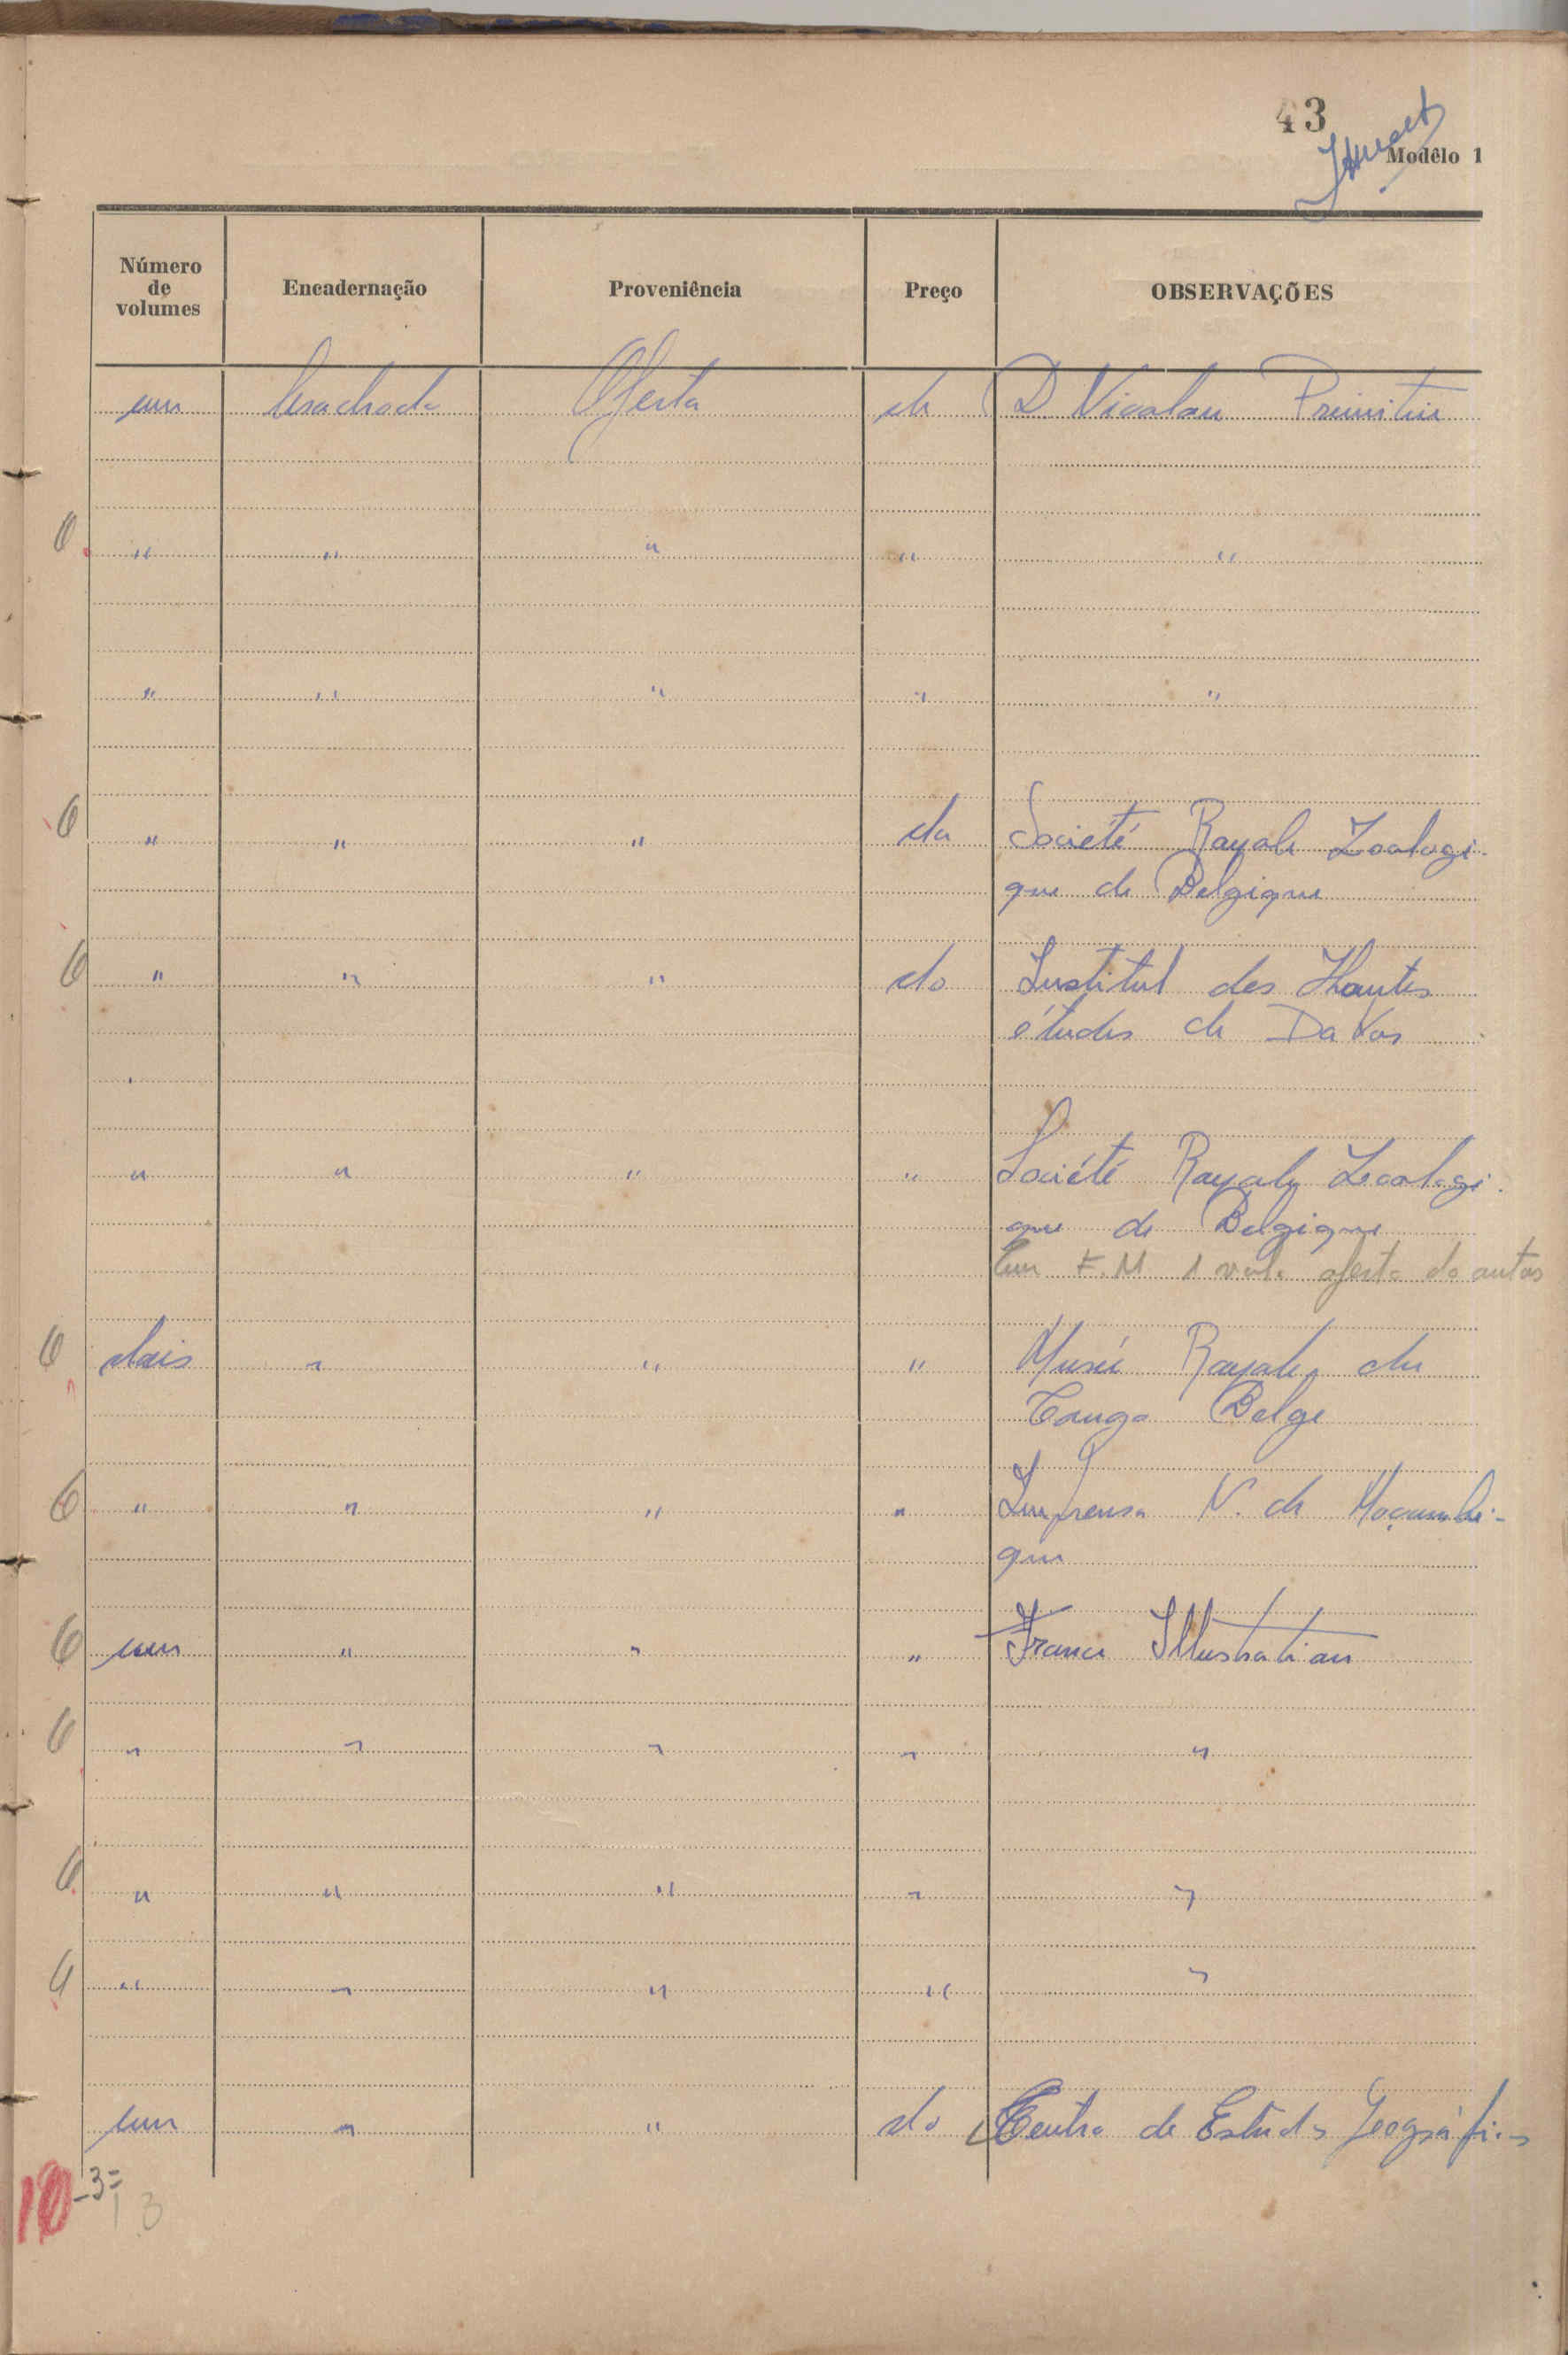 43
Modêlo 1
Número de volumes Encadernação Proveniência Preço OBSERVAÇÕES
um brochado Oferta de D Nicolau
" " " " "
" " " " "
" " " da Société Royale Zoologi-
que de Belgique
" " " do Institut des Hautes
études de
" " " " Société Royale Zoologi-
que de Belgique
Em F.M 1 vol. oferta do autor
dois " " " Musée Royale du
Congo Belge
" " " " Imprensa N. de Moçambi-
que
um " " " France Illustration
" " " " "
" " " " "
" " " " "
um " " do Centro de Estudos Geográficos
10 -3=
13